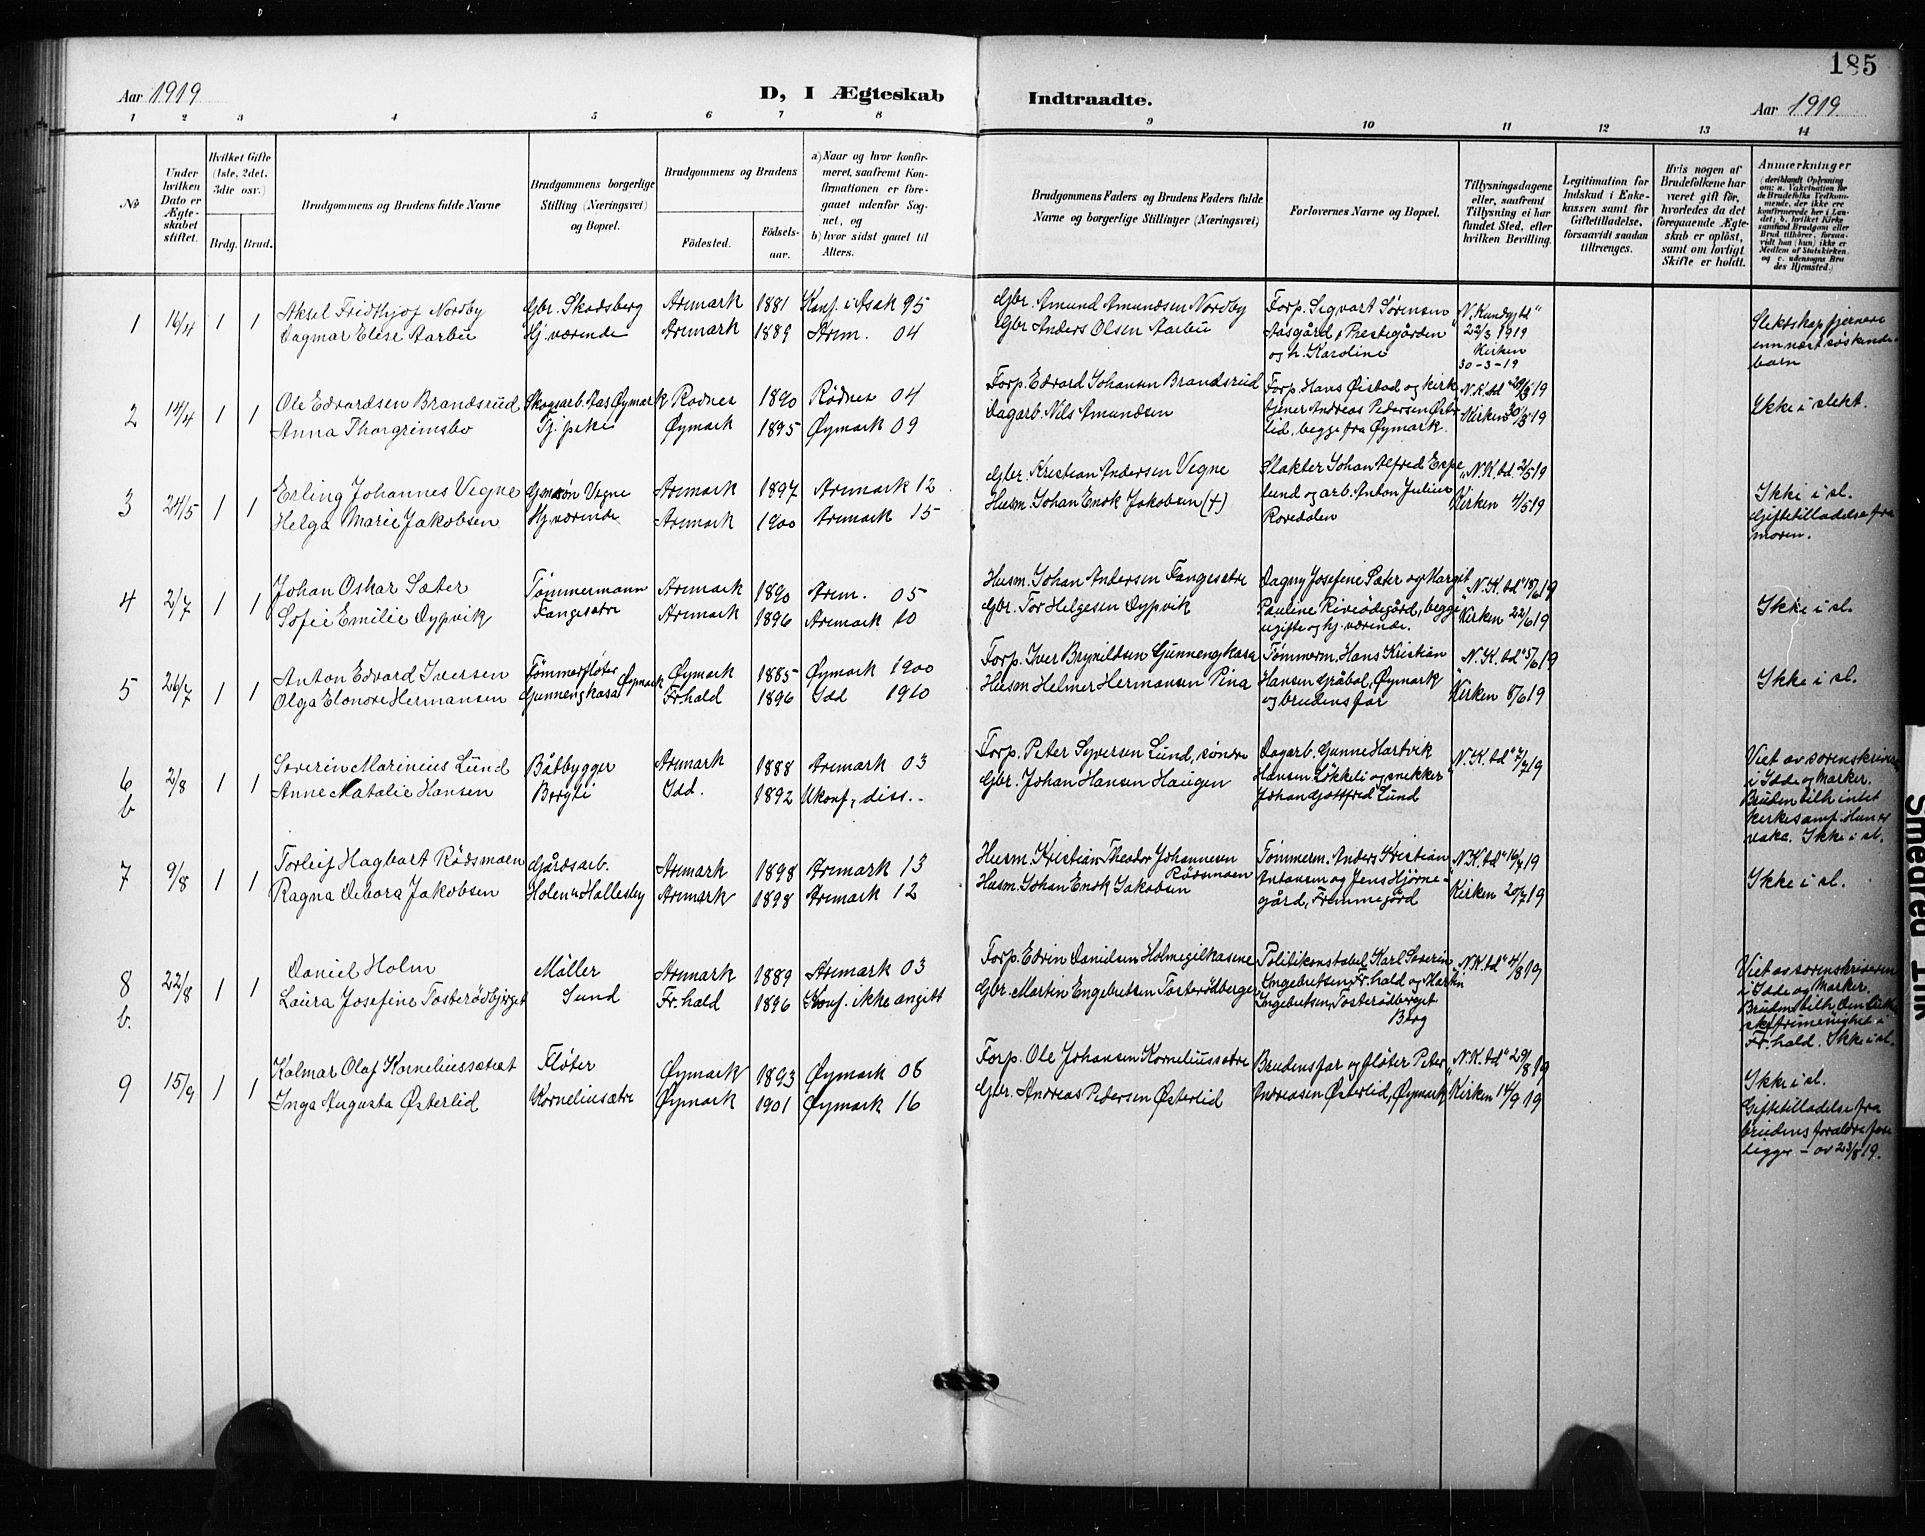 185
Aar 1919
D, I Ægteskab
Indtraadte.
Aar 1919
1 2 3 4 5 6 7 8 9 10 11 12 13 14
No
Under hvilken Dato er Ægteskabet stiftet.
Hvilket Gifte (1ste, 2det, 3die osv.)
Brdg. Brud.
Brudgommens og Brudens fulde Navne
Brudgommens borgerlige Stilling (Næringsvei) og Bopæl.
Brudgommens og Brudens
Fødested.
Fødselsaar.
a) Naar og hvor konfirmeret, saafremt Konfirmationen er foregaaet udenfor Sognet, og
b) hvor sidst gaaet til Alters.
Brudgommens Faders og Brudens Faders fulde Navne og borgerlige Stillinger (Næringsvei)
Forlovernes Navne og Bopæl.
Tillysningsdagene eller, saafremt Tillysning ei har fundet Sted, efter hvilken Bevilling.
Legitimation for Indskud i Enkekassen samt for Giftetilladelse, forsaavidt saadan tiltrænges.
Hvis nogen af Brudefolkene har været gift før, hvorledes da det foregaaende Ægteskab er opløst, samt om lovligt Skifte er holdt.
Anmærkninger (deriblandt Oplysning om: a. Vakcination for de Brudefolks Vedkommende, der ikke ere konfirmerede her i Landet; b. hvilket Kirkesamfund Brudgom eller Brud tilhører, forsaavidt han (hun) ikke er Medlem af Statskirken og c. udensogns Brudes Hjemsted.)
1 16/4 1 1
Aksel Fridthjof Nordby
Dagmar Elise Aarbu
Gbr. Skodsberg
Hj. værende
Aremark 1881 Konf. i Asak 95
Aremark 1889 Arem. 04
Gbr. Amund Amundsen Nordby
Gbr Anders Olsen Aarbu
Forp. Sigvart Sørensen
Aasgård, Prestegården
og h. Karoline
"N. Kundg. td"
22/3 1919
Kirken
30-3-19
Slektskap fjernere
enn nest søskende-
barn
2 14/4 1 1
Ole Edvardsen Brandsrud
Anna Thorgrimsbo
Skogsarb. Aas Øymark
Tj. pike
Rødnes 1890 Rødnes 04
Øymark 1895 Øymark 09
Forp. Edvard Johansen Brandsrud
Dagarb. Nils Amundsen
Forp. Hans Øistad og kirke
tjener Andreas Pedersen Øster
lid, begge fra Øymark.
"N.K. td" 29/3 19
Kirken 30/3 19
Ikke i slekt.
3 24/5 1 1
Erling Johannes Vegne
Helga Marie Jakobsen
Gm.søn Vegne
Hj. værende
Aremark 1897 Aremark 12
Aremark 1900 Aremark 15
Gbr. Kristian Andersen Vegne
Husm. Johan Enok Jakobsen (†)
Slakter Johan Alfred Espe
lund og arb. Anton Julius
Rovedalen
"N.K. td" 2/5 19
Kirken 4/5 19
Ikke i sl.
Giftetilladelse fra
moren.
4 2/7 1 1
Johan Oskar Sæter
Sofie Emilie Dypvik
Tømmermann
Fangesætre
Aremark 1890 Arem. 05
Aremark 1896 Aremark 10
Husm. Johan Andersen Fangesætre
Gbr. Tor Helgesen Dypvik
Dagny Josefine Sæter og Margit
Pauline Riveødegård, begge
ugifte og hj. værende.
"N.K. td" 18/6 19
Kirken 22/6 19
Ikke i sl.
5 26/7 1 1
Anton Edvard Iversen
Olga Elonore Hermansen
Tømmerfløter
Gunnengkasa Øymark
Øymark 1885 Øymark 1900
Fr.hald 1896 Idd 1910
Forp. Iver Brynildsen Gunnengkasa
Husm Helmer Hermansen Pina
Tømmerm. Hans Kristian
Hansen Gråbøl, Øymark
og brudens far
"N.K. td" 5/6 19
Kirken 8/6 19
Ikke i sl.
6 b 2/8 1 1
Severin Marinius Lund
Anne Natalie Hansen
Båtbygger
Borgli
Aremark 1888 Aremark 03
Idd. 1892 Ukonf., diss..
Forp. Peter Syversen Lund, søndre
Gbr. Johan Hansen Haugen
Dagarb. Gunne Hartvik
Hansen Løkkeli og snekker
Johan Gottfred Lund
"N.K. td" 7/7 19
Viet av sorenskriveren
i Idde og Marker.
Bruden tilh. intet
kirkesamf. Hun er
vaks. Ikke i sl.
7 9/8 1 1
Torleif Hagbart Rødsmoen
Ragna Debora Jakobsen
Gårdsarb.
Holen u. Hallesby
Aremark 1898 Aremark 13
Aremark 1898 Aremark 12
Husm. Kristian Theodor Johannesen
Rødsmoen
Husm. Johan Enok Jakobsen
Tømmerm. Anders Kristian
Antonsen og Jens Hjørne-
gård, Fremmegård
"N.K. td" 16/7 19
Kirken 20/7 19
Ikke i sl.
8 b. 22/8 1 1
Daniel Holm
Laura Josefine Tosterødbjerget
Møller
Sund
Aremark 1889 Aremark 03
Fr.hald 1896 Konf. ikke angitt
Forp. Edvin Danielsen Holmegilkasene
Gbr. Martin Engebretsen Tosterødberget
Politikonstabel Karl Severin
Ingebretsen Fr.hald og Martin
Ingebretsen, Tosterødberget
Berg
"N.K. td" 4/8 19
Viet av sorenskriveren
i Idde og Marker.
Bruden tilh. den Luther
ske frimenighet i
Fr.hald. Ikke i sl.
9 15/9 1 1
Kalmar Olaf Korneliussætret
Inga Augusta Østerlid
Fløter
Korneliusætre
Øymark 1893 Øymark 08
Øymark 1901 Øymark 16
Forp. Ole Johansen Korneliussætre
Gbr. Andreas Pedersen Østerlid
Brudens far og fløter Peter
Andreasen Østerlid, Øymark
"N.K. td" 29/8 19
Kirken 14/9 19
Ikke i sl.
Giftetilladelse fra
brudens forældre fore
ligger - av 23/8 19.